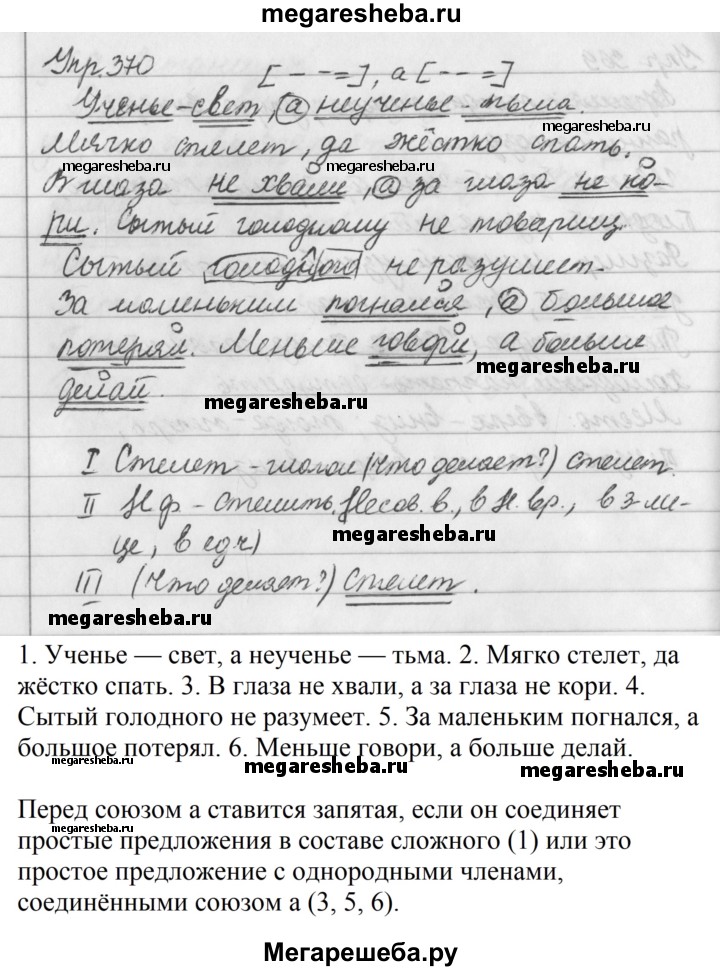 megaresheba.ru
Упр. 370
[- - =], а [- - =]
Ученье - свет, а неученье - тьма.
megaresheba.ru
Мягко стелет, да жёстко спать.
megaresheba.ru
megaresheba.ru
В глаза не хвали, а за глаза не ко-
ри. Сытый голодному не товарищ.
Сытый голодного не разумеет.
megaresheba.ru
За маленьким погнался, а большое
потерял. Меньше говори, а больше
megaresheba.ru
делай.
megaresheba.ru
I Стелет - глагол (что делает?) стелет.
II Н.ф. - стелить. Несов. в., в н. вр., в 3 ли-
megaresheba.ru
це, в ед.ч)
III (Что делает?) Стелет.
megaresheba.ru
1. Ученье — свет, а неученье — тьма. 2. Мягко стелет, да
жёстко спать. 3. В глаза не хвали, а за глаза не кори. 4.
Сытый голодного не разумеет. 5. За маленьким погнался, а
большое потерял. 6. Меньше говори, а больше делай.
megaresheba.ru
megaresheba.ru
Перед союзом а ставится запятая, если он соединяет
megaresheba.ru
простые предложения в составе сложного (1) или это
простое предложение с однородными членами,
соединёнными союзом а (3, 5, 6).
Мегарешеба.ру